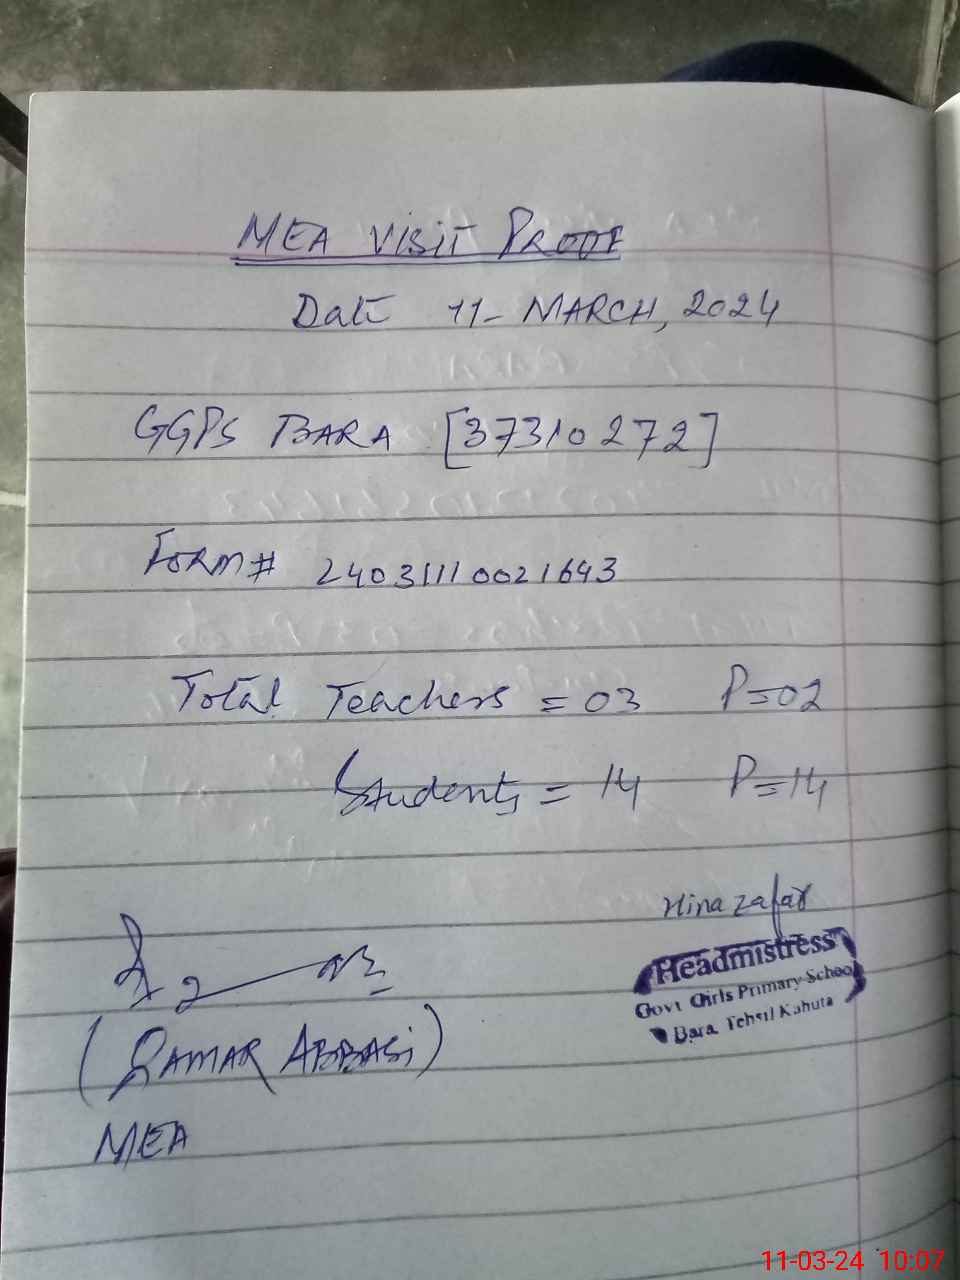 MEA VISIT PROOF
Date 11- MARCH, 2024
GGPS BARA [37310272]
FORM# 24031110021643
Total Teachers = 03 P=02
Students = 14 P=14
Hina Zafar
Headmistress
Govt Girls Primary School
Bara Tehsil Kahuta
(QAMAR ABBASI)
MEA
11-03-24 10:07